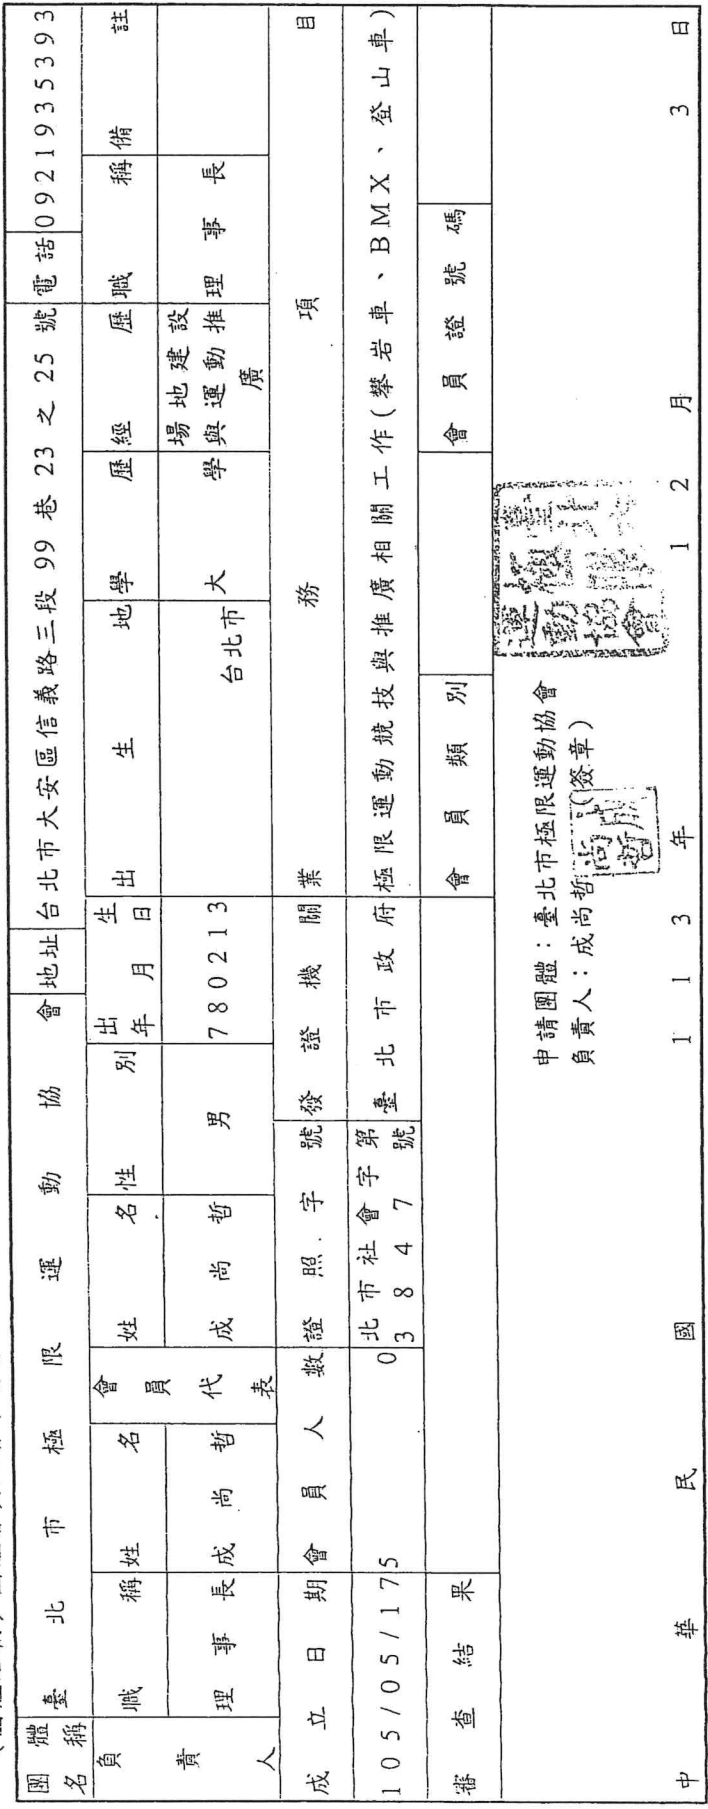 團體名稱 臺北市極限運動協會 地址 台北市大安區信義路三段99巷23之25號 電話 0921935393
負責人 職稱 姓名 會員代表 姓名 性別 出生年月日 出生地 學歷 經歷 職稱 備註
理事長 成尚哲 成尚哲 男 780213 台北市 大學 場地建設與運動推廣 理事長
成立日期 會員人數 證照字號 發證機關 業務項目
105/05/17 50 北市社會字第3847號 臺北市政府 極限運動競技與推廣相關工作(攀岩車、BMX、登山車)
審查結果 會員類別 會員證號碼
申請團體：臺北市極限運動協會
負責人：成尚哲 (簽章)
臺北市極限運動協會
成尚哲
中華民國113年12月3日